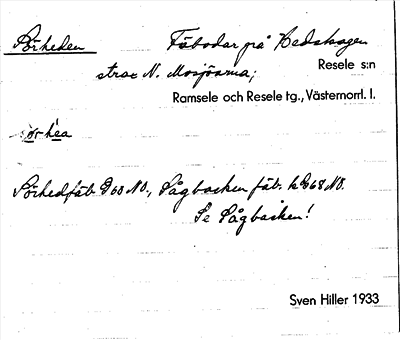 Sörheden Fäbodar på Hedskogen
strax N. Mosjöarna; Resele s:n
Ramsele och Resele tg., Västernorrl. l.
Sörhedfäb. G 60 NO., Sågbacken fäb. k G68 NO.
Se Sågbacken!
Sven Hiller 1933